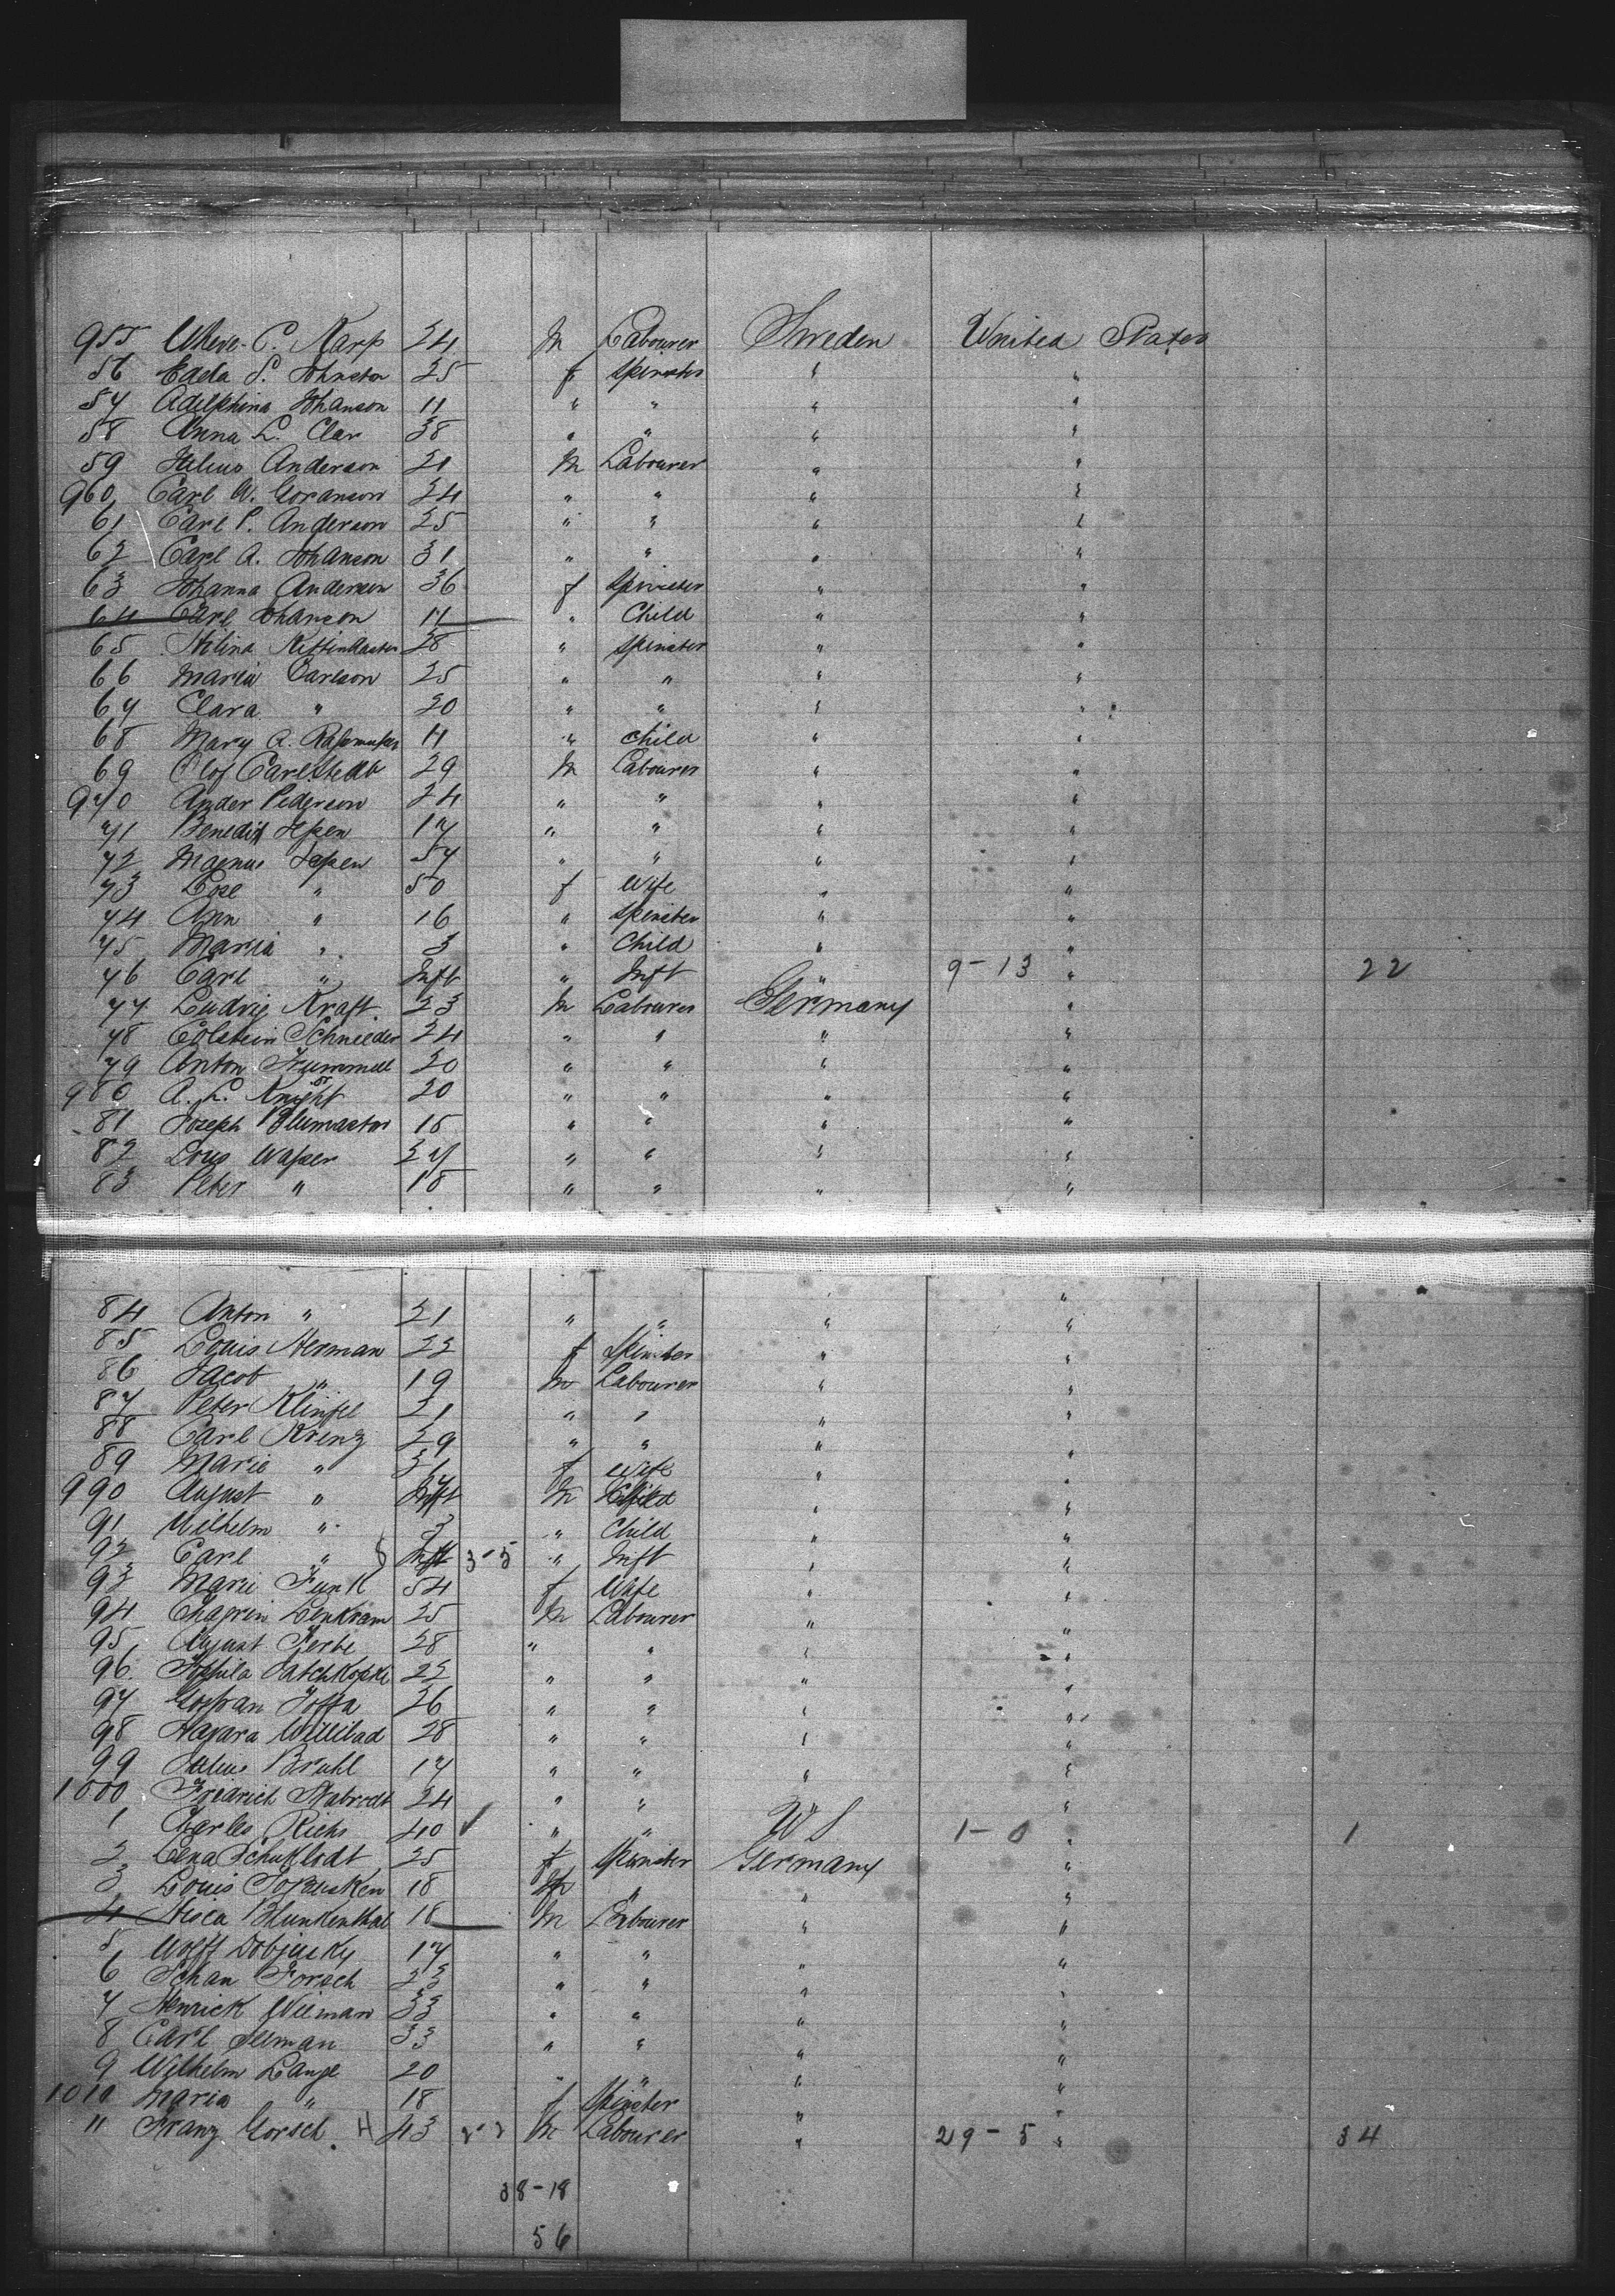 955 C. Karp 24 M Labourer Sweden United States
56 Edda S. Johnston 25 f Spinster " "
57 Adelphina Johanson 11 " " " "
58 Anna L. Clar 38 " " " "
59 Julius Anderson 21 M Labourer " "
960 Carl W. Goranson 24 " " " "
61 Carl P. Anderson 25 " " " "
62 Carl A. Johanson 31 " " " "
63 Johanna Anderson 36 f Spinster " "
64 Carl Johanson 11 " Child " "
65 28 " Spinster " "
66 Maria Carlson 25 " " " "
67 Clara " 20 " " " "
68 Mary A. 11 " Child " "
69 Olof Carlstedt 29 M Labourer " "
970 Ander Pederson 24 " " " "
71 Benedit Jepsen 17 " " " "
72 Magnus Jepsen 57 " " " "
73 " 50 f Wife " "
74 Ann " 16 " Spinster " "
75 Maria " 3 " Child " "
76 Carl " Inft " Inft " 9-13 " 22
77 Ludvig Kraft 23 M Labourer Germany "
78 Schneeder 24 " " " "
79 Anton Hummell 20 " " " "
980 A. L. Knight 20 " " " "
81 Joseph Blumastor 15 " " " "
82 Louis Wasser 27 " " " "
83 Peter " 18 " " " "
84 Anton " 21 " " " "
85 Louis Herman 22 f Spinster " "
86 Jacob " 19 M Labourer " "
87 Peter 21 " " " "
88 Carl Krenz 29 " " " "
89 Marie " 31 f Wife " "
990 August " M Child " "
91 Wilhelm " 3 " Child " "
92 Carl " Inft 3-5 " Inft " "
93 Marie Funk 54 f Wife " "
94 Lenkram 25 M Labourer " "
95 August Ferbe 28 " " " "
96 22 " " " "
97 Joffa 26 " " " "
98 Willibad 28 " " " "
99 Julius Bruhl 17 " " " "
1000 Fridrich Nabrodt 24 " " " "
1 Charles Richs 40 " " U S 1-0 " 1
2 Lena 25 f Spinster Germany "
3 Louis 18 " " "
4 Blunkenthal 18 M Labourer " "
5 Wolff Dobjinsky 17 " " " "
6 Schan Forsch 23 " " " "
7 Henrick Wieman 33 " " " "
8 Carl Illman 33 " " " "
9 Wilhelm Lange 20 " " " "
1010 Maria " 18 f Spinster " "
11 Franz Gorsch 43 M Labourer " 29-5 " 34
38-18
56